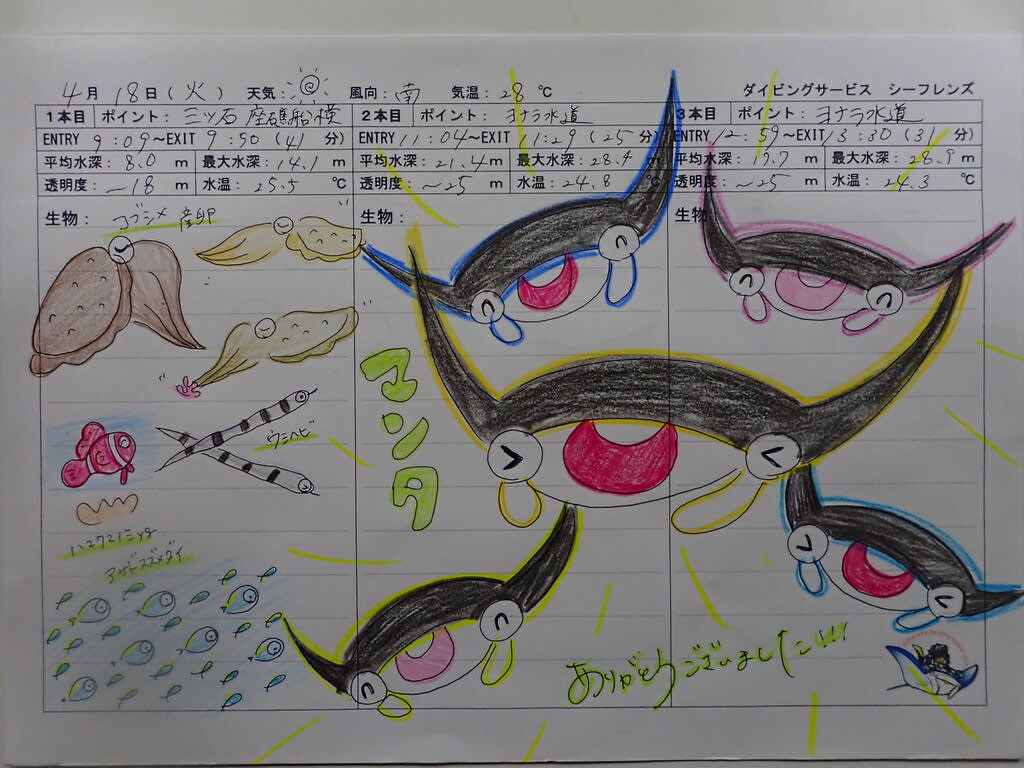 4月18日(火) 天気: 風向:南 気温:28℃ ダイビングサービス シーフレンズ
1本目 ポイント: 三ツ石 座礁船横
ENTRY 9:09~EXIT 9:50(41分)
平均水深:8.0m 最大水深:14.1m
透明度:~18m 水温:25.5℃
生物: コブシメ 産卵
ウミヘビ
ハマクマノミッチ
アサドスズメダイ
2本目 ポイント: ヨナラ水道
ENTRY 11:04~EXIT 11:29(25分)
平均水深:21.4m 最大水深:28.4m
透明度:~25m 水温:24.8℃
生物:
マンタ
3本目 ポイント: ヨナラ水道
ENTRY 12:59~EXIT 13:30(31分)
平均水深:17.7m 最大水深:28.9m
透明度:~25m 水温:24.3℃
生物
ありがとうございました!!!